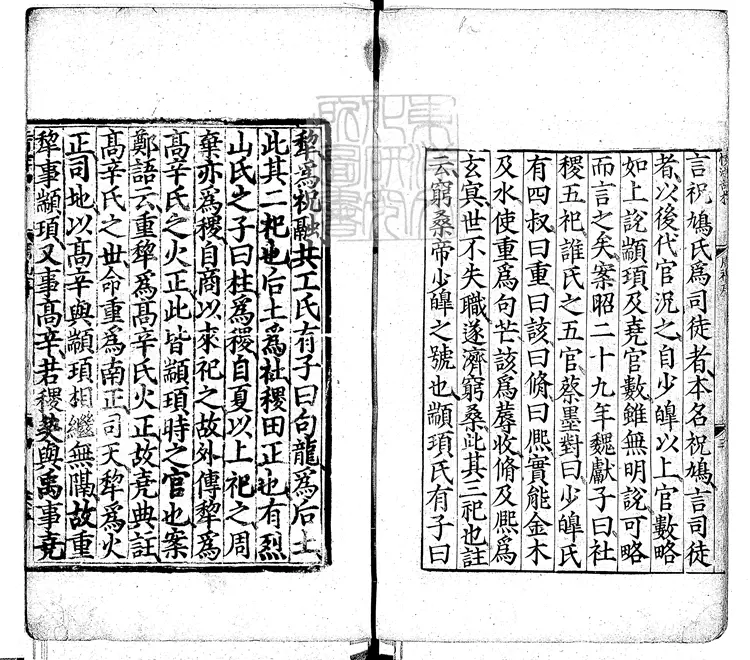 言祝鳩氏爲司徒者本名祝鳩言司徒
者以後代官況之自少皥以上官數略
如上說顓頊及堯官數雖無明說可略
而言之矣案昭二十九年魏獻子曰社
稷五祀誰氏之五官蔡墨對曰少皥氏
有四叔曰重曰該曰脩曰熙實能金木
及水使重爲句芒該爲蓐收脩及熙爲
玄冥世不失職遂濟窮桑此其三祀也註
云窮桑帝少皥之號也顓頊氏有子曰
犂爲祝融共工氏有子曰句龍爲后土
此其二祀也后土爲社稷田正也有烈
山氏之子曰柱爲稷自夏以上祀之周
棄亦爲稷自商以來祀之故外傳犂爲
高辛氏之火正此皆顓頊時之官也案
鄭語云重犂爲高辛氏火正故堯典註
高辛氏之世命重爲南正司天犂爲火
正司地以高辛與顓頊相繼無隔故重
犂事顓頊又事高辛若稷契與禹事堯